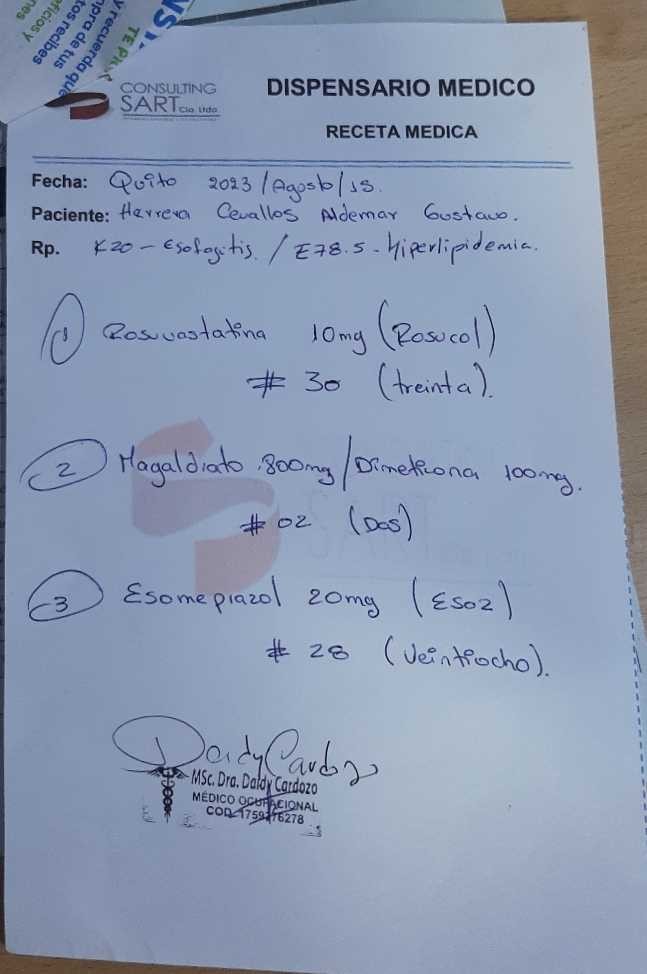 y recuerda que
mpra de tus
tos recibes
eficios y
nes
TE PI
CONSULTING
SART Cia. Ltda.
DISPENSARIO MEDICO
RECETA MEDICA
Fecha: Quito 2023/Agosto/15.
Paciente: Herrera Cevallos Aldemar Gustavo.
Rp. K20 - Esofagitis. / E78.5 - Hiperlipidemia.
1 Rosuvastatina 10mg (Rosucol)
# 30 (treinta).
2 Magaldrato 800mg/Dimeticona 100mg.
# 02 (Dos)
3 Esomeprazol 20mg (ESOZ)
# 28 (Veintiocho).
Daidy Cardozo
MSc. Dra. Daidy Cardozo
MÉDICO OCUPACIONAL
COD. 1759376278